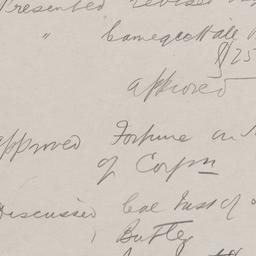 Presented revised
" Carnegie Hall
$25
approved
approved Fortune and
of Corpn
Discussed Cal Inst of
Butler